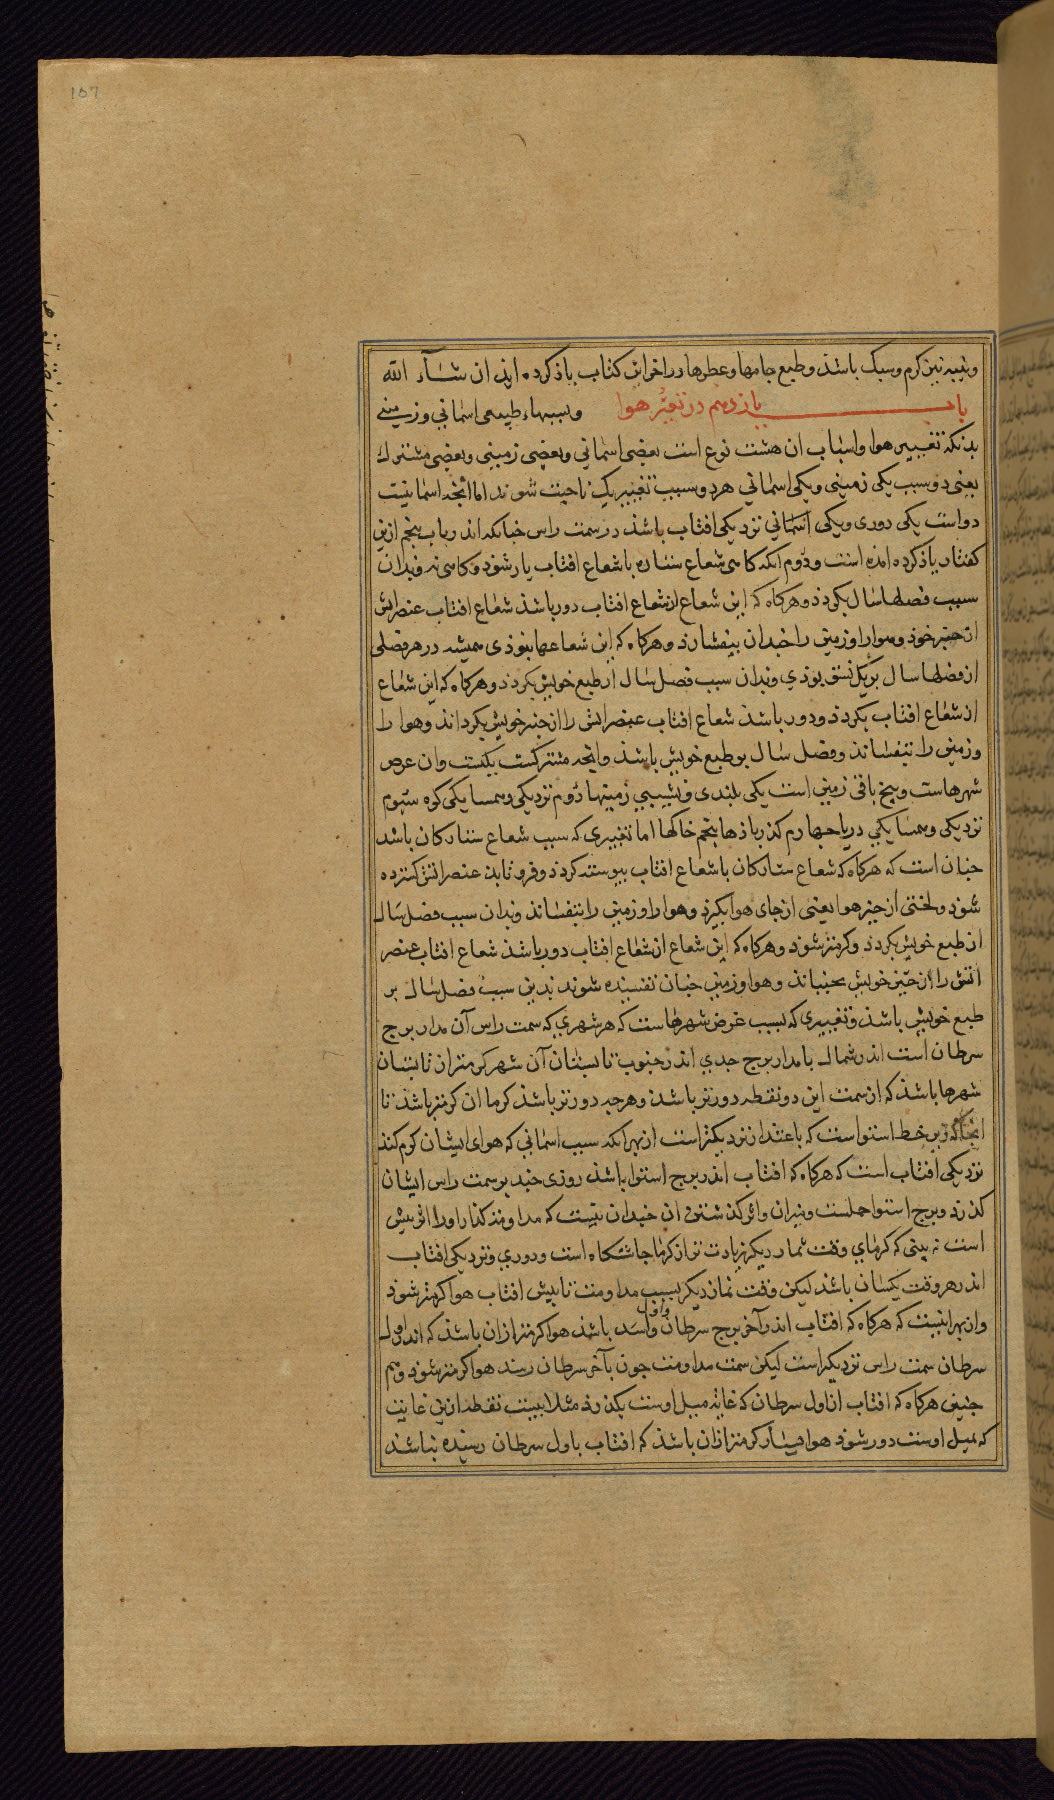 107
و پنبه نیز گرم و سبک باشذ و طبع جامها و عطرها در اخر این کتاب یاذ کرده ایذ ان شآء الله
باب یازدهم در تغیّر هوا و سببهاء طبیعی اسمانی و زمینی
بدانکه تغییر هوا و اسباب ان هشت نوع است بعضی اسمانی و بعضی زمینی و بعضی مشترک
یعنی دو سبب یکی زمینی و یکی اسمانی هر دو سبب تغییر یک ناحیت شوند اما انچه اسمانیست
دو است یکی دوری و یکی اسمانی نزدیکی افتاب باشذ در سمت راس چنانکه اندر باب پنجم ازین
گفتار یاذ کرده امذه است و دوم انکه گاهی شعاع ستاره با شعاع افتاب یار شوذ و گاهی نه و بذان
سبب فصلها سال بگردذ و هرگاه که این شعاع از شعاع افتاب دور باشذ شعاع افتاب عنصر اتش
از حیز خوذ و هوا را و زمین را چندان بیفشارذ و هرگاه که این شعاعها نبوذی همیشه در هر فصلی
از فصلها سال بر یک نسق بوذی و بذان سبب فصل سال از طبع خویش بگردذ و هرگاه که این شعاع
از شعاع افتاب بگردذ و دور باشذ شعاع افتاب عنصر اتش را از حیز خویش بگرداند و هوا را
و زمین را نتفساند و فصل سال بر طبع خویش باشذ و انچه مشترکست یکیست و ان عرض
شهرهاست و پنج باقی زمینی است یکی بلندی و نشیبی زمینها دوم نزدیکی و همسایگی کوه سیوم
نزدیکی و همسایگی دریا چهارم گذر باذها پنجم خاکها اما تغییری که سبب شعاع ستارگان باشد
چنان است که هرگاه که شعاع ستارگان با شعاع افتاب پیوسته گردذ و فروتابد عنصر اتش گسترده
شوذ و لختی از حیز هوا یعنی از جای هوا بگیرذ و هوا را و زمین را بتفساند و بذان سبب فصل سال
از طبع خویش بگردذ و گرمتر شوذ و هرگاه که این شعاع از شعاع افتاب دور باشذ شعاع افتاب عنصر
اتش را از حیّز خویش بجنباند و هوا و زمین چنان تفسیده شوند بدین سبب فصل سال بر
طبع خویش باشذ و تغییری که بسبب عرض شهرهاست که هر شهری که سمت راس آن مدار برج
سرطان است اندر شمال یا مدار برج جدی اندر جنوب تابستان آن شهر گرمتر از تابستان
شهرها باشذ که از سمت این دو نقطه دورتر باشذ و هر چه دورتر باشذ گرما ان کمتر باشذ تا
انجا که زیر خط استواست که باعتدال نزدیکتر است از بهر انکه سبب اسمانی که هوای ایشان گرم کند
نزدیکی افتاب است که هرگاه که افتاب اندر برج استوا باشذ روزی چند بر سمت راس ایشان
گذرد و برج استوا حملست و میزان و اثر گذشتن ان چندان نیست که مداومت کند از اورا اثر بیش
است نه بینی که گرمای وقت نماز دیگر زیادت تر از گرما چاشتگاه است و دوری و نزدیکی افتاب
اندر هر وقت یکسان باشذ لیکن وقت نماز دیگر بسبب مداومت تابش افتاب هوا گرمتر شوذ
و از بهر اینست که هرگاه که افتاب اندر آخر برج سرطان و اول اسد باشذ هوا گرمتر از ان باشذ که اندر اول
سرطان سمت راس نزدیکتر است لیکن سمت مداومت چون بآخر سرطان رسد هوا گرمتر شوذ و هم
چنین هرگاه که افتاب از اول سرطان که غایة میل اوست بگذرذ مثلا بیست نقطه ازین غایت
که میل اوست دور شوذ هوا بسیار گرمتر از ان باشذ که افتاب باول سرطان رسیده نباشد